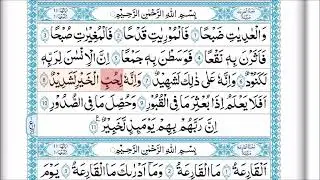 بِسْمِ اللّٰهِ الرَّحْمٰنِ الرَّحِيْمِ
وَالْعٰدِيٰتِ ضَبْحًا ۙ﴿۱﴾ فَالْمُوْرِيٰتِ قَدْحًا ۙ﴿۲﴾ فَالْمُغِيْرٰتِ صُبْحًا ۙ﴿۳﴾
فَاَثَرْنَ بِهٖ نَقْعًا ۙ﴿۴﴾ فَوَسَطْنَ بِهٖ جَمْعًا ۙ﴿۵﴾ اِنَّ الْاِنْسَانَ لِرَبِّهٖ
لَكَنُوْدٌ ۚ﴿۶﴾ وَاِنَّهٗ عَلٰى ذٰلِكَ لَشَهِيْدٌ ۚ﴿۷﴾ وَاِنَّهٗ لِحُبِّ الْخَيْرِ لَشَدِيْدٌ ؕ﴿۸﴾
اَفَلَا يَعْلَمُ اِذَا بُعْثِرَ مَا فِى الْقُبُوْرِ ۙ﴿۹﴾ وَحُصِّلَ مَا فِى الصُّدُوْرِ ۙ﴿۱۰﴾
اِنَّ رَبَّهُمْ بِهِمْ يَوْمَئِذٍ لَّخَبِيْرٌ ﴿۱۱﴾
بِسْمِ اللّٰهِ الرَّحْمٰنِ الرَّحِيْمِ
اَلْقَارِعَةُ ۙ﴿۱﴾ مَا الْقَارِعَةُ ۚ﴿۲﴾ وَمَاۤ اَدْرٰىكَ مَا الْقَارِعَةُ ؕ﴿۳﴾ يَوْمَ